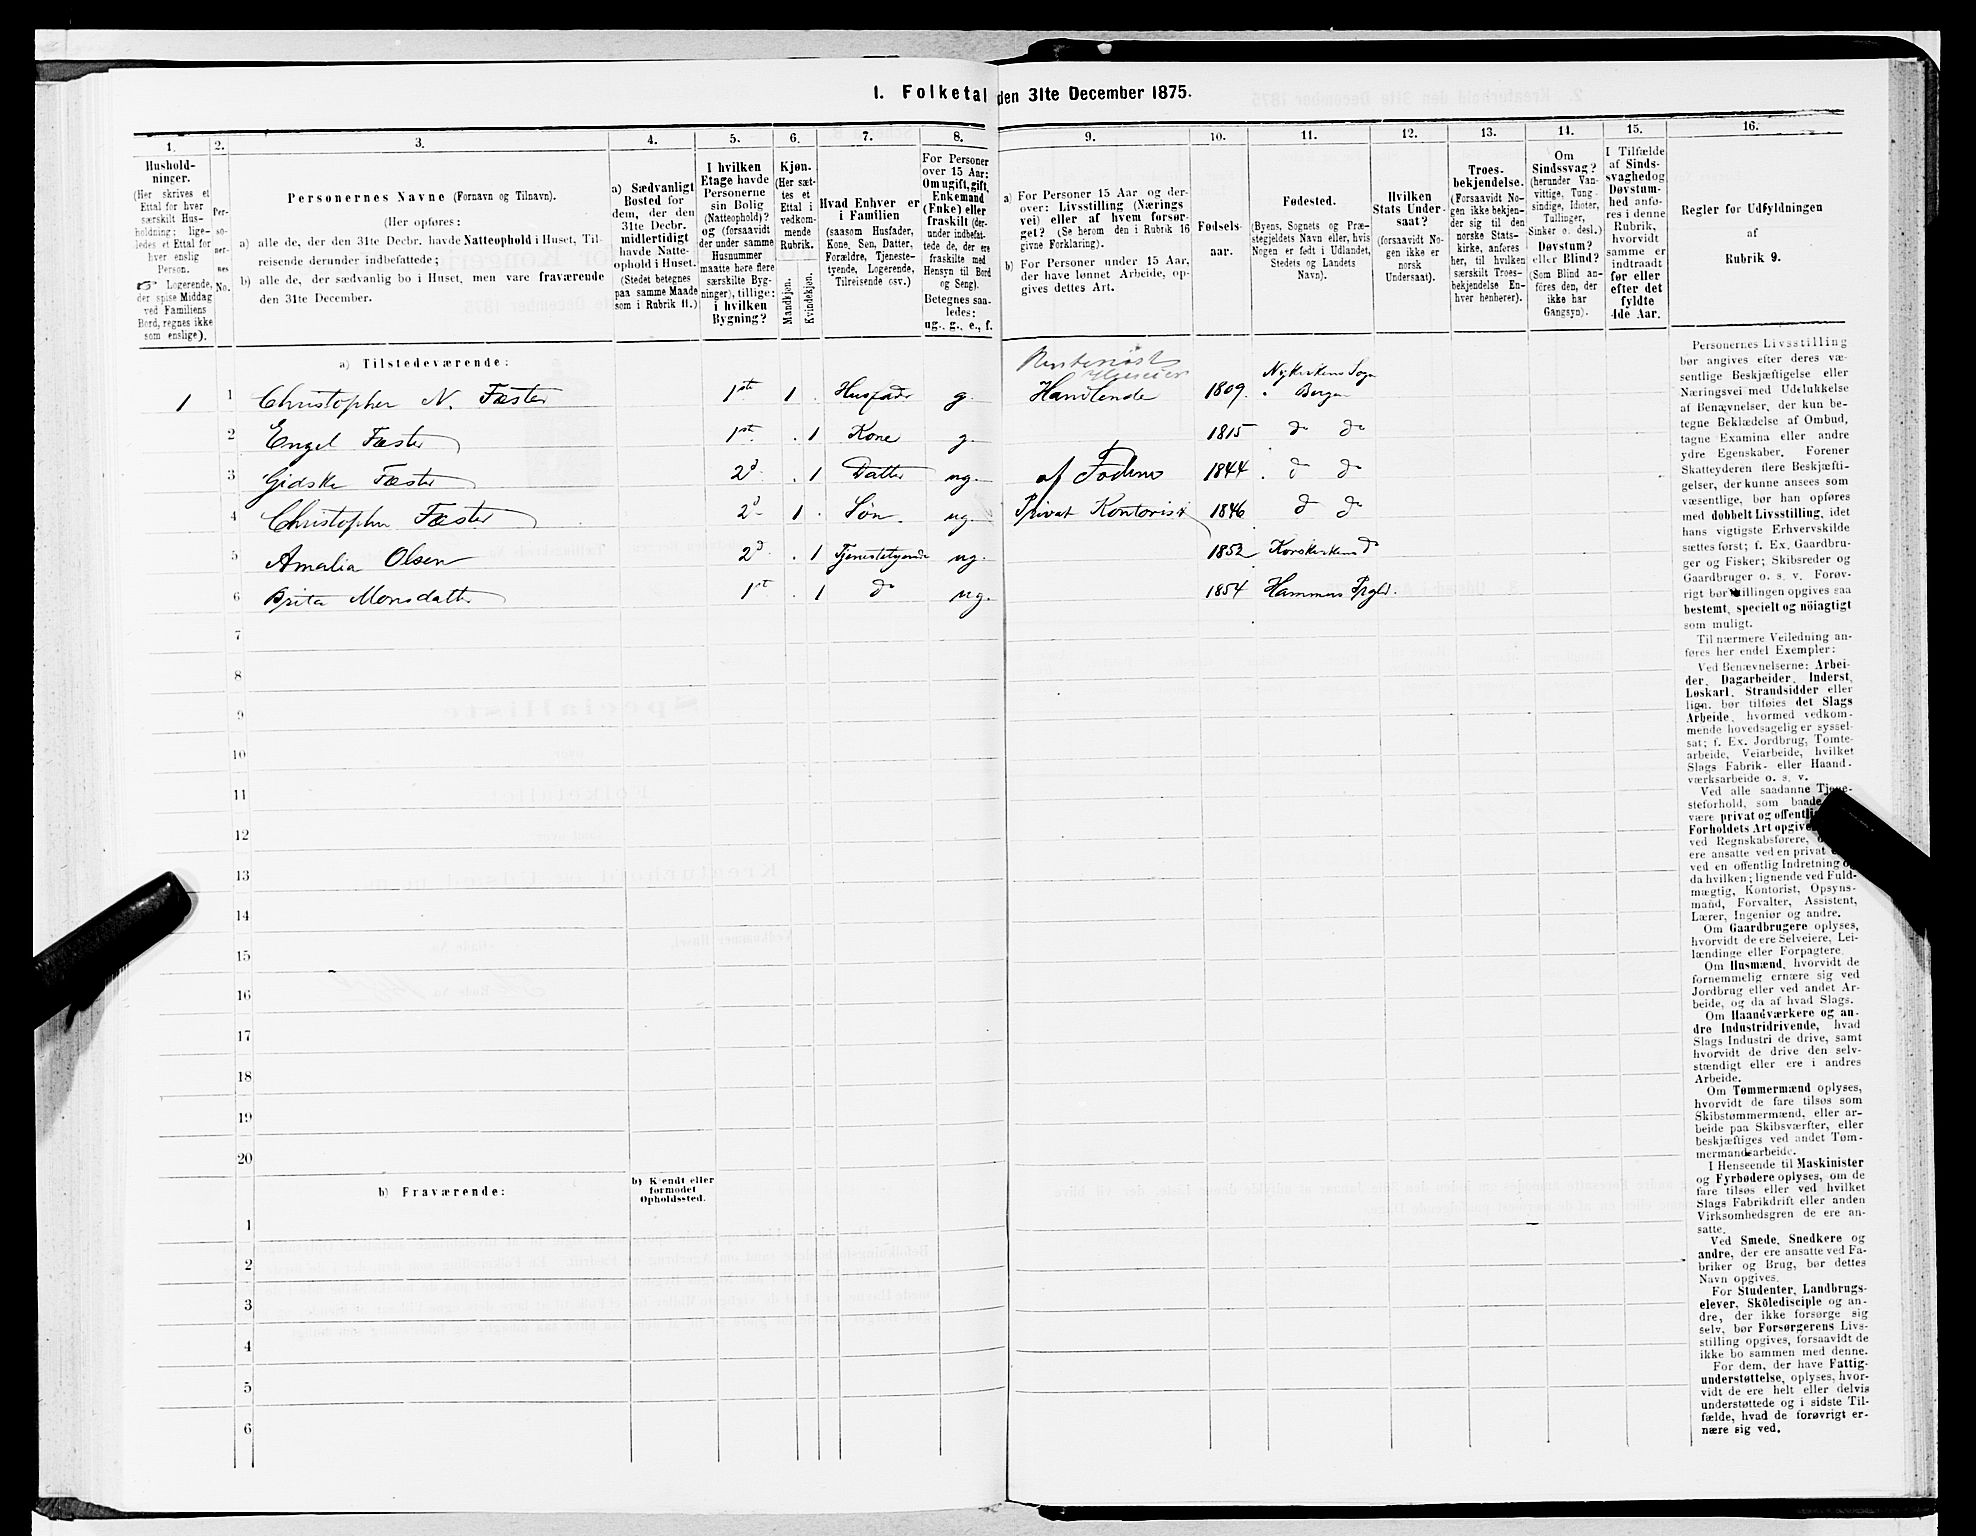 1. Folketal den 31te December 1875.
1.
2.
3.
4.
5.
6.
7.
8.
9.
10.
11.
12.
13.
14.
15.
16.
Hushold-
ninger.
(Her skrives et
Ettal for hver
særskilt Hus-
holdning; lige-
ledes et Ettal for
hver enslig
Person.
☞ Logerende,
der spise Middag
ved Familiens
Bord, regnes ikke
som enslige).
Per-
so-
ner-
nes
No.
Personernes Navne (Fornavn og Tilnavn).
(Her opføres:
a) alle de, der den 31te Decbr. havde Natteophold i Huset, Til-
reisende derunder indbefattede;
b) alle de, der sædvanlig bo i Huset, men vare fraværende
den 31te December.
a) Sædvanligt
Bosted for
dem, der den
31te Decbr.
midlertidigt
havde Natte-
ophold i Huset.
(Stedet betegnes
paa samme Maade
som i Rubrik 11.)
I hvilken
Etage havde
Personerne
sin Bolig
(Natteophold)?
og (forsaavidt
der under samme
Husnummer
maatte høre flere
særskilte Byg-
ninger), tillige:
i hvilken
Bygning?
Kjøn.
(Her sæt-
tes et
Ettal i
vedkom-
mende
Rubrik.
Mandkjøn.
Kvindekjøn.
Hvad Enhver er
i Familien
(saasom Husfader,
Kone, Søn, Datter,
Forældre, Tjeneste-
tyende, Logerende,
Tilreisende osv.)
For Personer
over 15 Aar:
Om ugift, gift,
Enkemand
(Enke) eller
fraskilt (der-
under indbefat-
tede de, der ere
fraskilte med
Hensyn til Bord
og Seng).
Betegnes saa-
ledes:
ug., g., e., f.
a) For Personer 15 Aar og der-
over: Livsstilling (Nærings
vei) eller af hvem forsør-
get? (Se herom den i Rubrik 16
givne Forklaring).
b) For Personer under 15 Aar,
der have lønnet Arbeide, op-
gives dettes Art.
Fødsels-
aar.
Fødested.
(Byens, Sognets og Præ-
stegjeldets Navn eller, hvis
Nogen er født i Udlandet,
Stedets og Landets
Navn).
Hvilken
Stats Under-
saat?
(forsaavidt No-
gen ikke er
norsk
Undersaat).
Troes-
bekjendelse.
(Forsaavidt No-
gen ikke bekjen-
der sig til den
norske Stats-
kirke, anføres
her, til hvilken
særskilt Troes-
bekjendelse En-
hver henhører).
Om
Sindssvag?
(herunder Van-
vittige, Tung-
sindige, Idioter,
Tullinger,
Sinker o. desl.)
Døvstum?
eller Blind?
(Som Blind an-
føres den, der
ikke har
Gangsyn).
I Tilfælde
af Sinds-
svaghed og
Døvstum-
hed anfø-
res i denne
Rubrik,
hvorvidt
samme er
indtraadt
før eller
efter det
fyldte
4de Aar.
Regler før Udfyldningen
af
Rubrik 9.
a) Tilstedeværende:
1 1 Christopher N. Fæster 1ste 1 . Husfader g. Handlende 1809. Nykirkens Sogn Bergen
2 Engel Fæster 1st . 1 Kone g. 1815 do do
3 Gidske Fæster 2d . 1 Datter ug. af Faderen 1844 . do do
4 Christopher Fæster 2d 1 . Søn. ug. Privat Kontorist 1846 do do
5 Amalia Olsen 2d . 1 Tjenestetyende ug. 1852 Korskirkens do
6 Brita Monsdatter 1st . 1 do ug. 1854 Hammers Prgld.
7
8
9
10
11
12
13
14
15
16
17
18
19
20
b) Fraværende:
b) Kjendt eller
formodet
Opholdssted.
1
2
3
4
5
6
Personernes Livsstilling
bør angives efter deres væ-
sentlige Beskjæftigelse eller
Næringsvei med Udelukkelse
af Benævnelser, der kun be-
tegne Beklædelse af Ombud,
tagne Examina eller andre
ydre Egenskaber. Forener
Skatteyderen flere Beskjæfti-
gelser, der kunne ansees som
væsentlige, bør han opføres
med dobbelt Livsstilling, idet
hans vigtigste Erhvervskilde
sættes først; f. Ex. Gaardbru-
ger og Fisker; Skibsreder og
Gaardbruger o. s. v. Forøv-
rigt bør Stillingen opgives saa
bestemt, specielt og nöiagtigt
som muligt.
Til nærmere Veiledning an-
føres her endel Exempler:
Ved Benævnelserne: Arbei-
der, Dagarbeider, Inderst,
Løskarl, Strandsidder eller
lign. bør tilføies det Slags
Arbeide, hvormed vedkom-
mende hovedsagelig er syssel-
sat; f. Ex. Jordbrug, Tomte-
arbeide, Veiarbeide, hvilket
Slags Fabrik- eller Haand-
værksarbeide o. s. v.
Ved alle saadanne Tjene-
steforhold, som baade
være privat og offentli
Forholdets Art opgive
ved Regnskabsførere,
ere ansatte ved en privat
ved en offentlig Indretning
da hvilken; lignende ved Fuld-
mægtig, Kontorist, Opsyns-
mand, Forvalter, Assistent,
Lærer, Ingeniør og andre.
Om Gaardbrugere oplyses,
hvorvidt de ere Selveiere, Lei-
lændinge eller Forpagtere.
Om Husmænd, hvorvidt de
fornemmelig ernære sig ved
Jordbrug eller ved andet Ar-
beide, og da af hvad Slags.
Om Haandværkere og an-
dre Industridrivende, hvad
Slags Industri de drive, samt
hvorvidt de drive den selv-
stændigt eller ere i andres
Arbeide.
Om Tømmermænd oplyses,
hvorvidt de fare tilsøs som
Skibstømmermænd, eller ar-
beide paa Skibsværfter, eller
beskjæftiges ved andet Tøm-
mermandsarbeide.
I Henseende til Maskinister
og Fyrbødere oplyses, om de
fare tilsøs eller ved hvilket
Slags Fabrikdrift eller anden
Virksomhedsgren de ere an-
satte.
Ved Smede, Snedkere og
andre, der ere ansatte ved Fa-
briker og Brug, bør dettes
Navn opgives.
For Studenter, Landbrugs-
elever, Skölediscipler og an-
dre, der ikke forsørge sig
selv, bør Forsørgerens Livs-
stilling opgives, forsaavidt de
ikke bo sammen med denne.
For dem, der have Fattig-
understøttelse, oplyses, hvor-
vidt de ere helt eller delvis
understøttede og i sidste Til-
fælde, hvad de forøvrigt er-
nære sig ved.